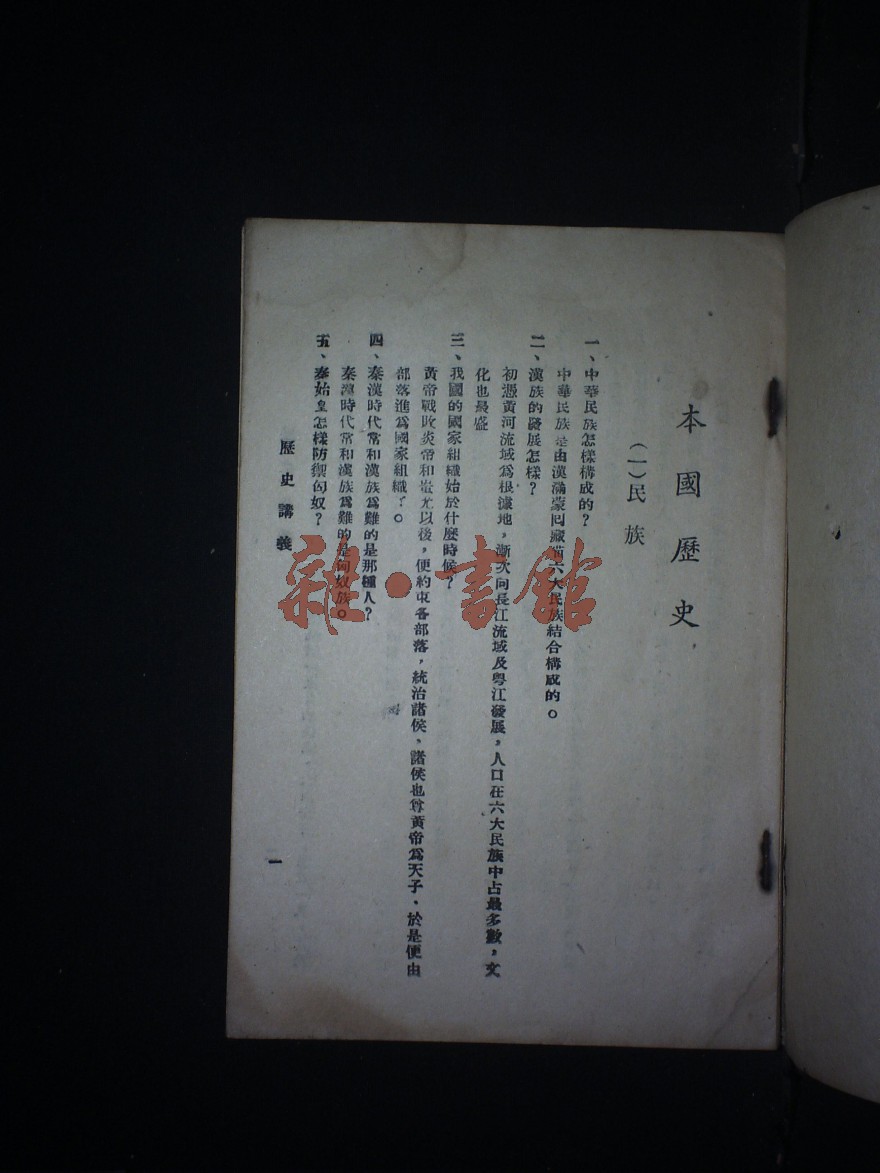 本國歷史
（一）民族
一、中華民族怎樣構成的？
中華民族是由漢滿蒙回藏苗六大民族結合構成的。
二、漢族的發展怎樣？
初憑黃河流域爲根據地，漸次向長江流域及粤江發展，人口在六大民族中占最多數，文
化也最盛
三、我國的國家組織始於什麼時候？
黃帝戰敗炎帝和蚩尤以後，便約束各部落，統治諸侯、諸侯也尊黃帝爲天子、於是便由
部落進爲國家組織？。
四、秦漢時代常和漢族爲難的是那種人？
秦漢時代常和漢族爲難的是匈奴族。
五、秦始皇怎樣防禦匈奴？
歷史講義
一
雜·書館